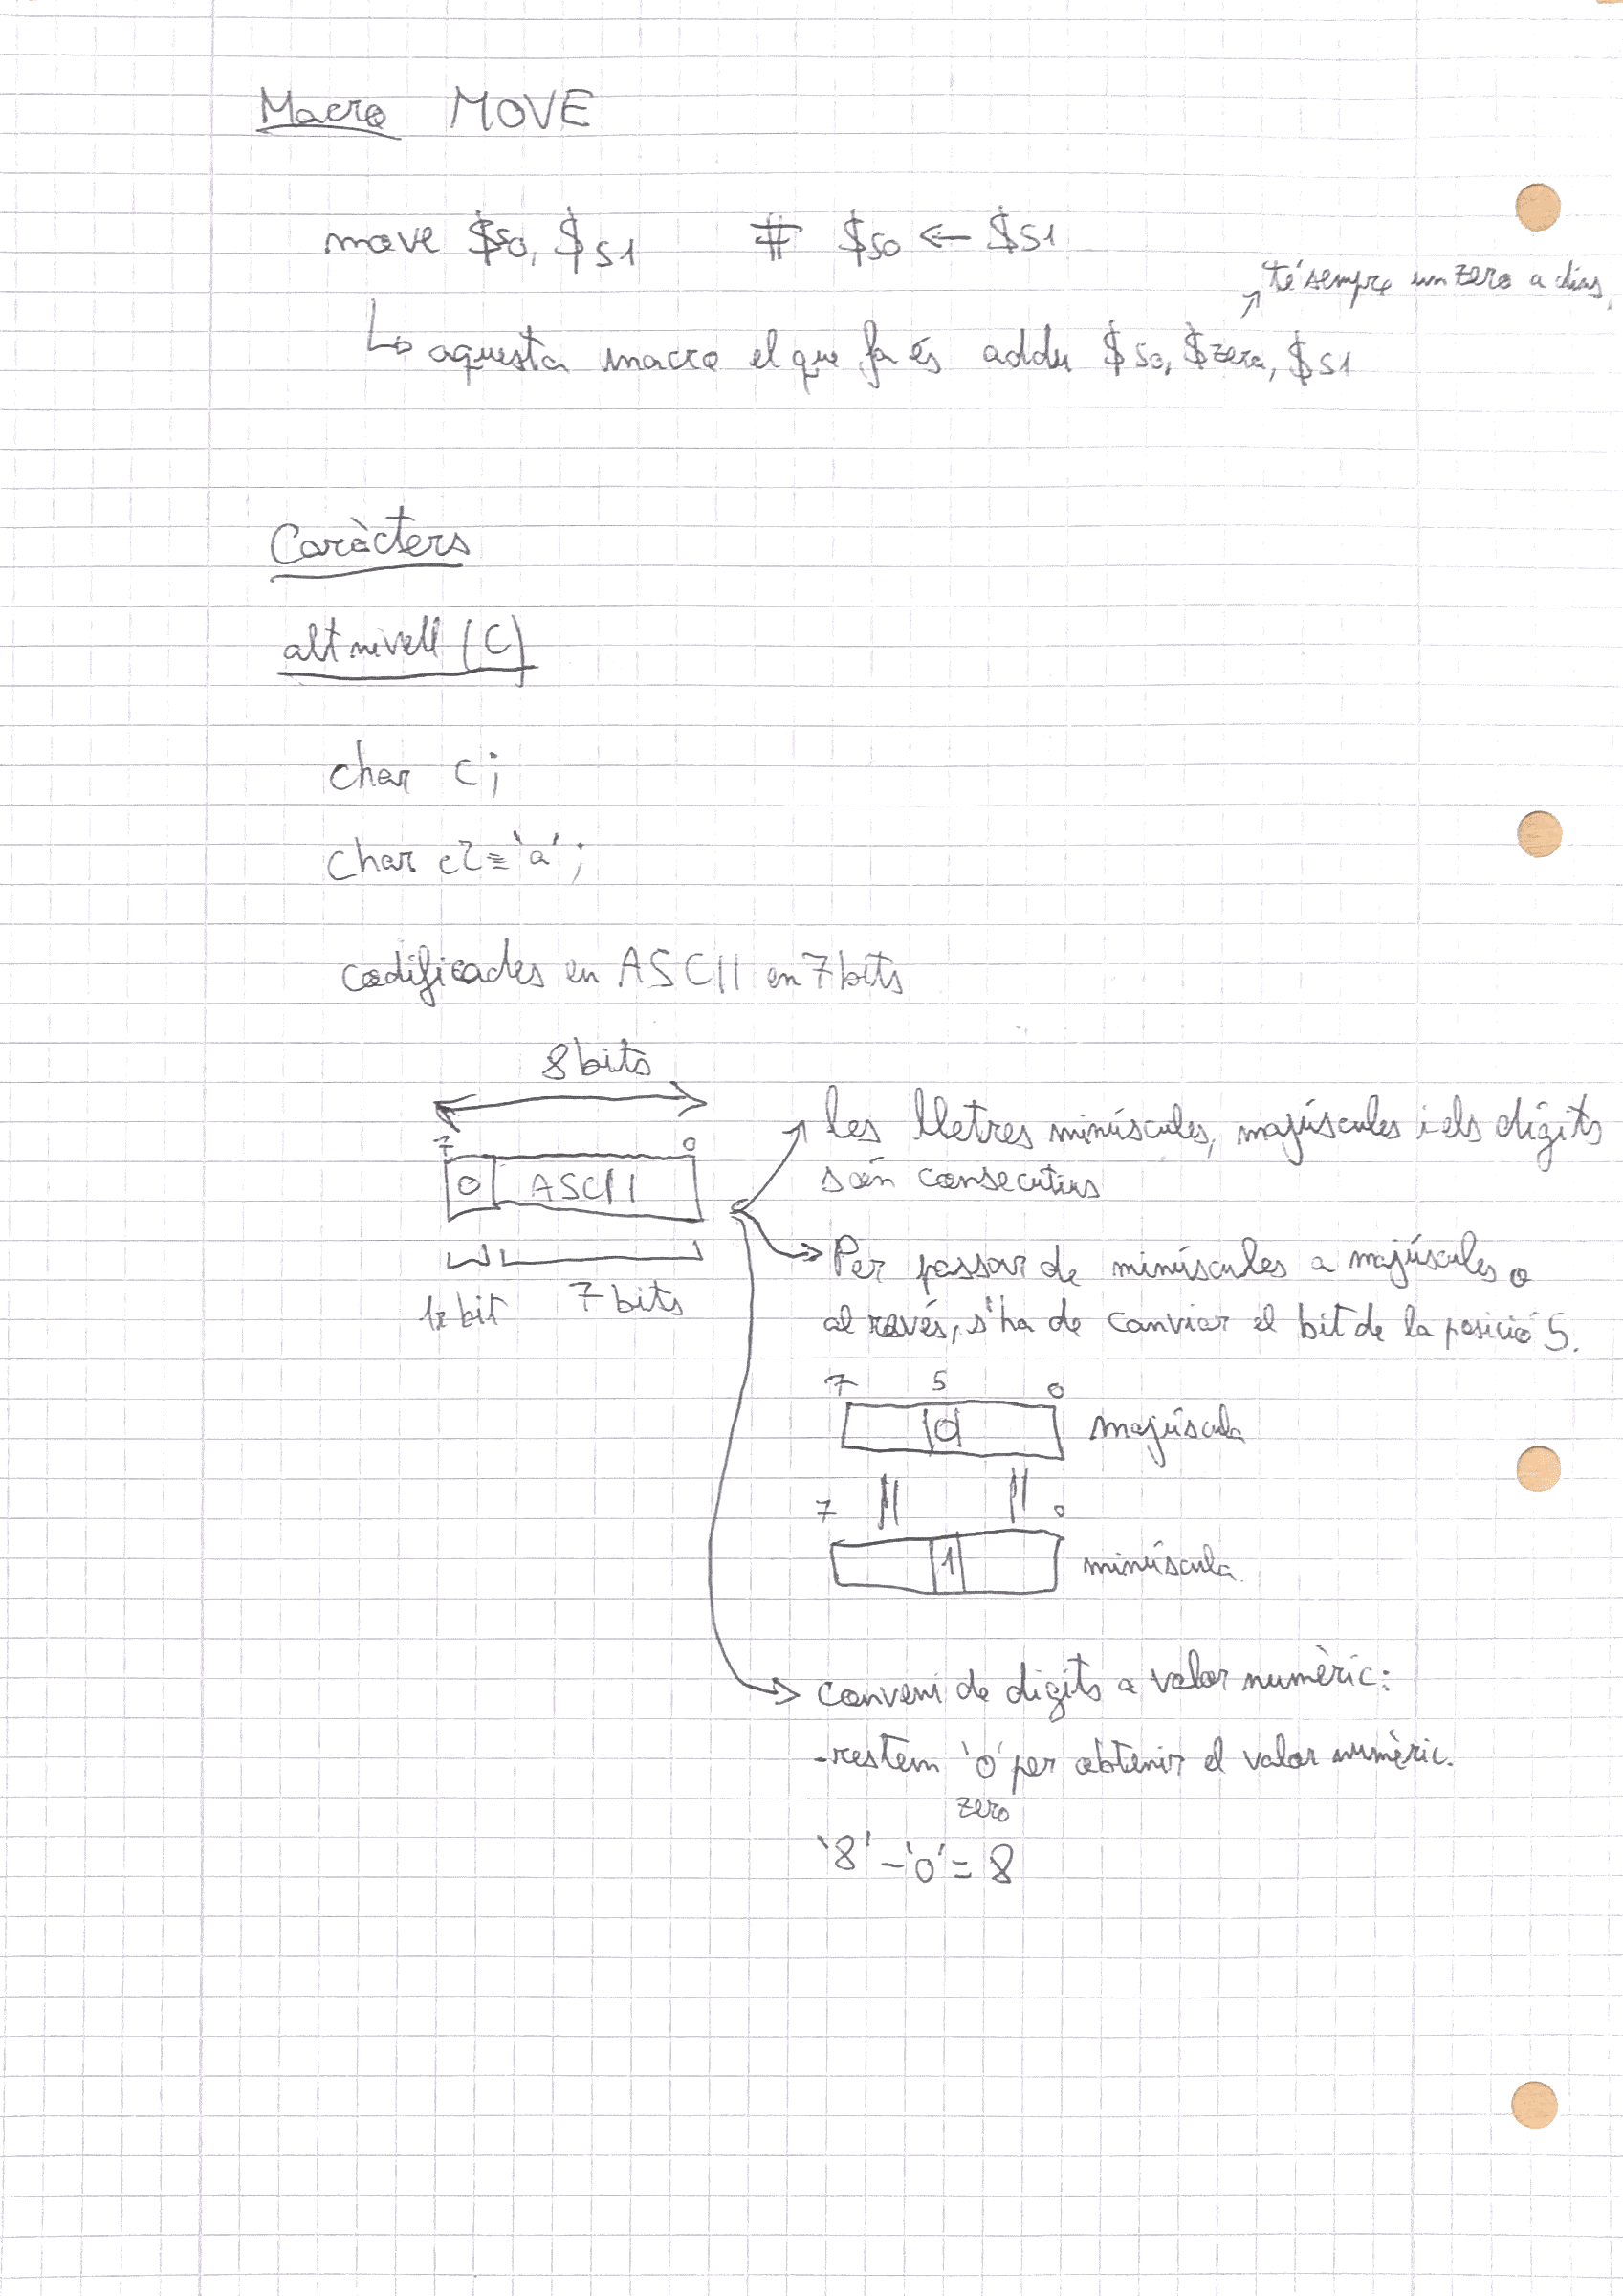 Macro MOVE
move $s0, $s1 # $s0 ← $s1
té sempre un zero a dins.
↳ aquesta macro el que fa és addu $s0, $zero, $s1
Caràcters
alt nivell (C)
char c;
char c2 = 'a';
codificades en ASCII en 7 bits
8 bits
7 0
0 ASCII
1r bit 7 bits
les lletres minúscules, majúscules i els dígits
són consecutius
Per passar de minúscules a majúscules o
al revés, s'ha de canviar el bit de la posició 5.
7 5 0
0 majúscula
7 0
1 minúscula
conveni de digits a valor numèric:
-restem '0' per obtenir el valor numèric.
zero
'8' - '0' = 8